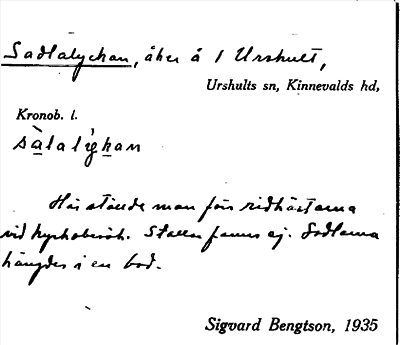 Sadlalyckan, åker å 1 Urshult,
Urshults sn, Kinnevalds hd,
Kronob. l.
sàlalýkan
Här stände man förr ridhästarna
vid kyrkobesök. Stallar fanns ej. Sadlarna
hängdes i en bod.
Sigvard Bengtson, 1935